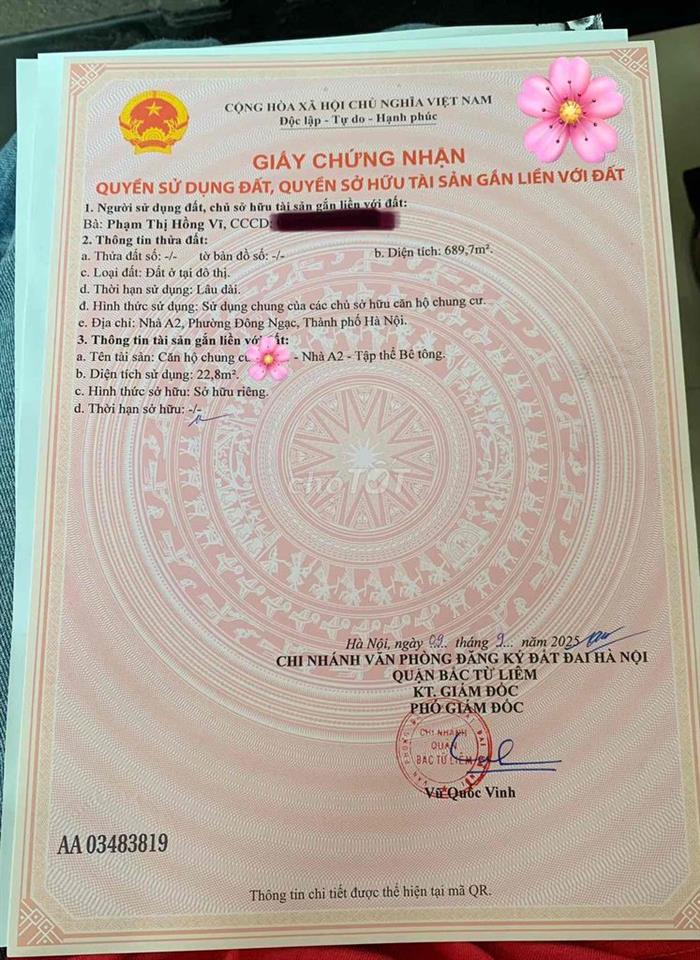 CỘNG HÒA XÃ HỘI CHỦ NGHĨA VIỆT NAM
Độc lập - Tự do - Hạnh phúc
GIẤY CHỨNG NHẬN
QUYỀN SỬ DỤNG ĐẤT, QUYỀN SỞ HỮU TÀI SẢN GẮN LIỀN VỚI ĐẤT
1. Người sử dụng đất, chủ sở hữu tài sản gắn liền với đất:
Bà: Phạm Thị Hồng Vĩ, CCCD:
2. Thông tin thửa đất:
a. Thửa đất số: -/- tờ bản đồ số: -/- b. Diện tích: 689,7m².
c. Loại đất: Đất ở tại đô thị.
d. Thời hạn sử dụng: Lâu dài.
đ. Hình thức sử dụng: Sử dụng chung của các chủ sở hữu căn hộ chung cư.
e. Địa chỉ: Nhà A2, Phường Đông Ngạc, Thành phố Hà Nội.
3. Thông tin tài sản gắn liền với đất:
a. Tên tài sản: Căn hộ chung - Nhà A2 - Tập thể Bê tông.
b. Diện tích sử dụng: 22,8m².
c. Hình thức sở hữu: Sở hữu riêng.
d. Thời hạn sở hữu: -/-
choTỐT
Hà Nội, ngày 09 tháng 9 năm 2025
CHI NHÁNH VĂN PHÒNG ĐĂNG KÝ ĐẤT ĐAI HÀ NỘI
QUẬN BẮC TỪ LIÊM
KT. GIÁM ĐỐC
PHÓ GIÁM ĐỐC
CHI NHÁNH
QUẬN
BẮC TỪ LIÊM
Vũ Quốc Vinh
AA 03483819
Thông tin chi tiết được thể hiện tại mã QR.